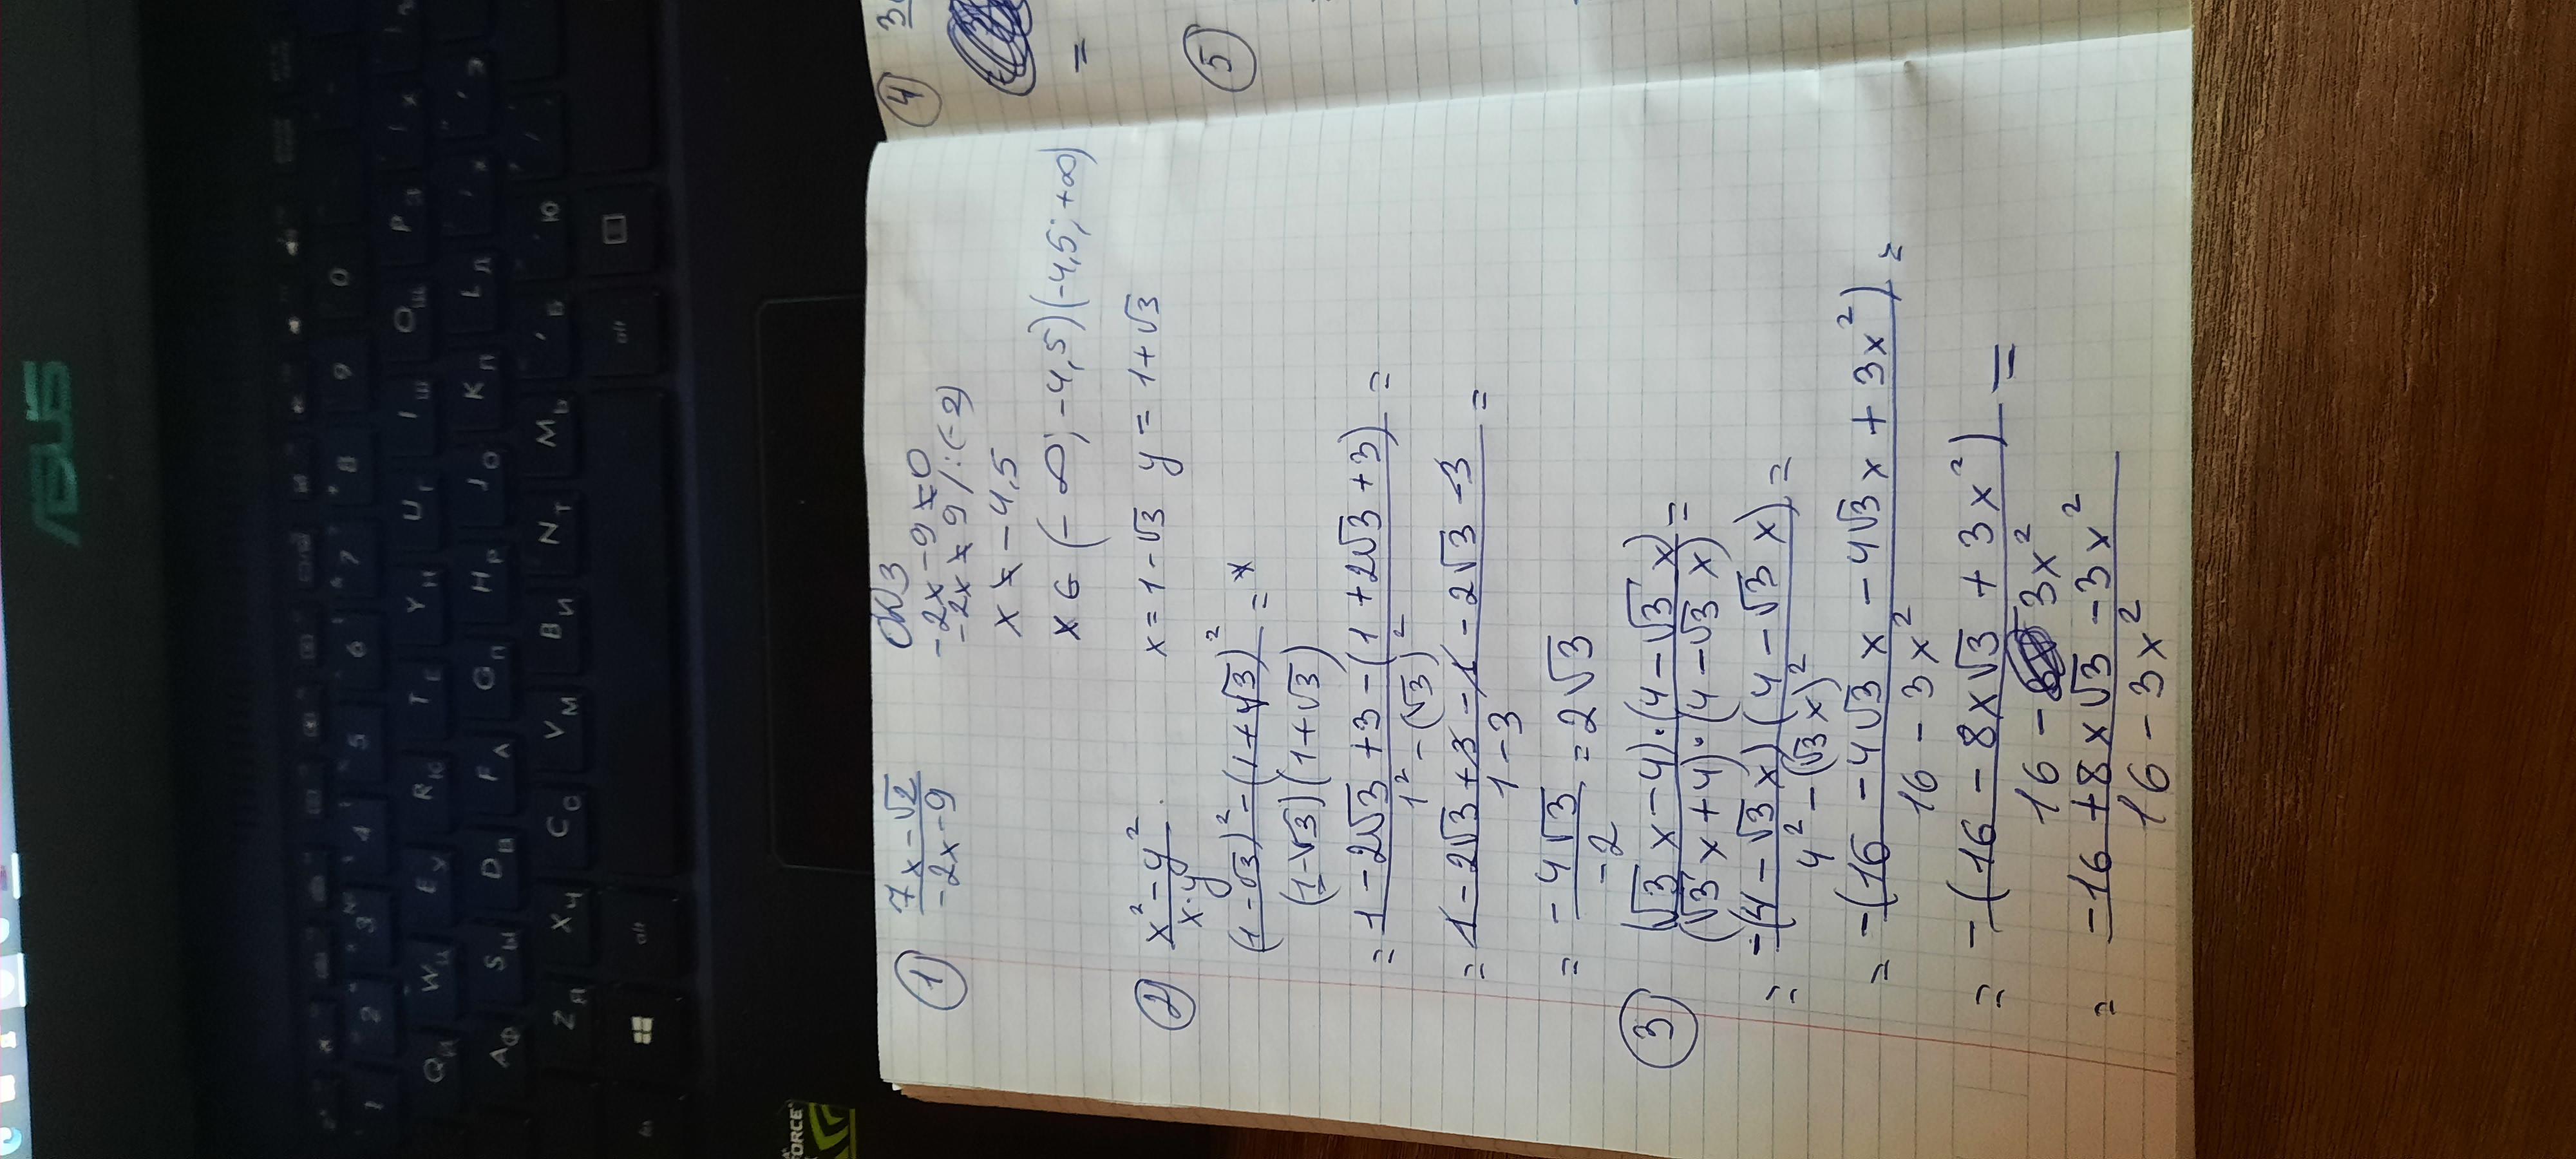 ASUS
① (7x-√2)/(-2x-9) ОДЗ
-2x-9≠0
-2x≠9/:(-2)
x≠-4,5
x∈(-∞;-4,5)(-4,5;+∞)
② (x²-y²)/(x·y) x=1-√3 y=1+√3
((1-√3)²-(1+√3)²)/((1-√3)(1+√3)) =
= (1-2√3+3-(1+2√3+3))/(1²-(√3)²) =
= (1-2√3+3-1-2√3-3)/(1-3) =
= (-4√3)/(-2) = 2√3
③ ((√3x-4)·(4-√3x))/((√3x+4)·(4-√3x)) =
= (-(4-√3x)(4-√3x))/(4²-(√3x)²) =
= (-(16-4√3x-4√3x+3x²))/(16-3x²) =
= (-(16-8x√3+3x²))/(16-3x²) =
= (-16+8x√3-3x²)/(16-3x²)
④ 3
=
⑤